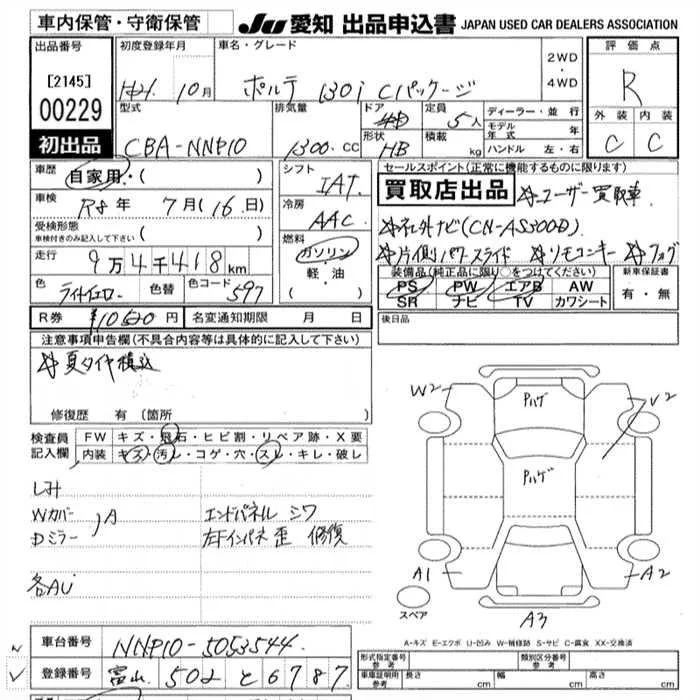 車内保管・守衛保管
JU 愛知 出品申込書 JAPAN USED CAR DEALERS ASSOCIATION
出品番号
[2145]
00229
初出品
初度登録年月
10月
車名・グレード
ポルテ 130i Cパッケージ
2WD
・
4WD
評価点
R
外装 内装
C C
型式
CBA-NNP10
排気量
1300.cc
ドア
形状
HB
定員
5人
積載
kg
ディーラー・並行
モデル年式 年
ハンドル 左・右
車歴
自家用・( )
車検
R8年 7月(16日)
受検形態
車検付きのみ記入して下さい ( )
走行
9万4千418km
色
ライトイエロー
色替
色コード
597
シフト
IAT
冷房
AAC
燃料
ガソリン
・
軽・油
( )
セールスポイント(正常に機能するものに限ります)
買取店出品 ☆ユーザー買取車
☆社外ナビ(CN-AS300D)
☆片側パワースライド ☆リモコンキー ☆フォグ
装備品(純正品に限り○をつけてください)
PS PW エアB AW
SR ナビ TV カワシート
新車保証書
有・無
R券 ¥10520円
名変通知期限 月 日
後日品
注意事項申告欄(不具合内容等は具体的に記入して下さい)
☆夏タイヤ積込
修復歴 有(箇所 )
検査員記入欄
FW キズ・飛石・ヒビ割・リペア跡・X要
内装 キズ・汚れ・コゲ・穴・スレ・キレ・破レ
Wカバー
Dミラー )A
各AU
エンドパネル シワ
左下インパネ歪 修復
W2
Pハゲ
V2
Pハゲ
A1
A2
A3
スペア
A-キズ E-エクボ U-凹み W-補修跡 S-サビ C-腐食 XX-交換済
車台番号 NNP10-5053544
登録番号 富山 502 と 6787
形式指定番号
参考
類別区分番号
参考
車庫証明用
参考
長さ cm
幅 cm
高さ cm